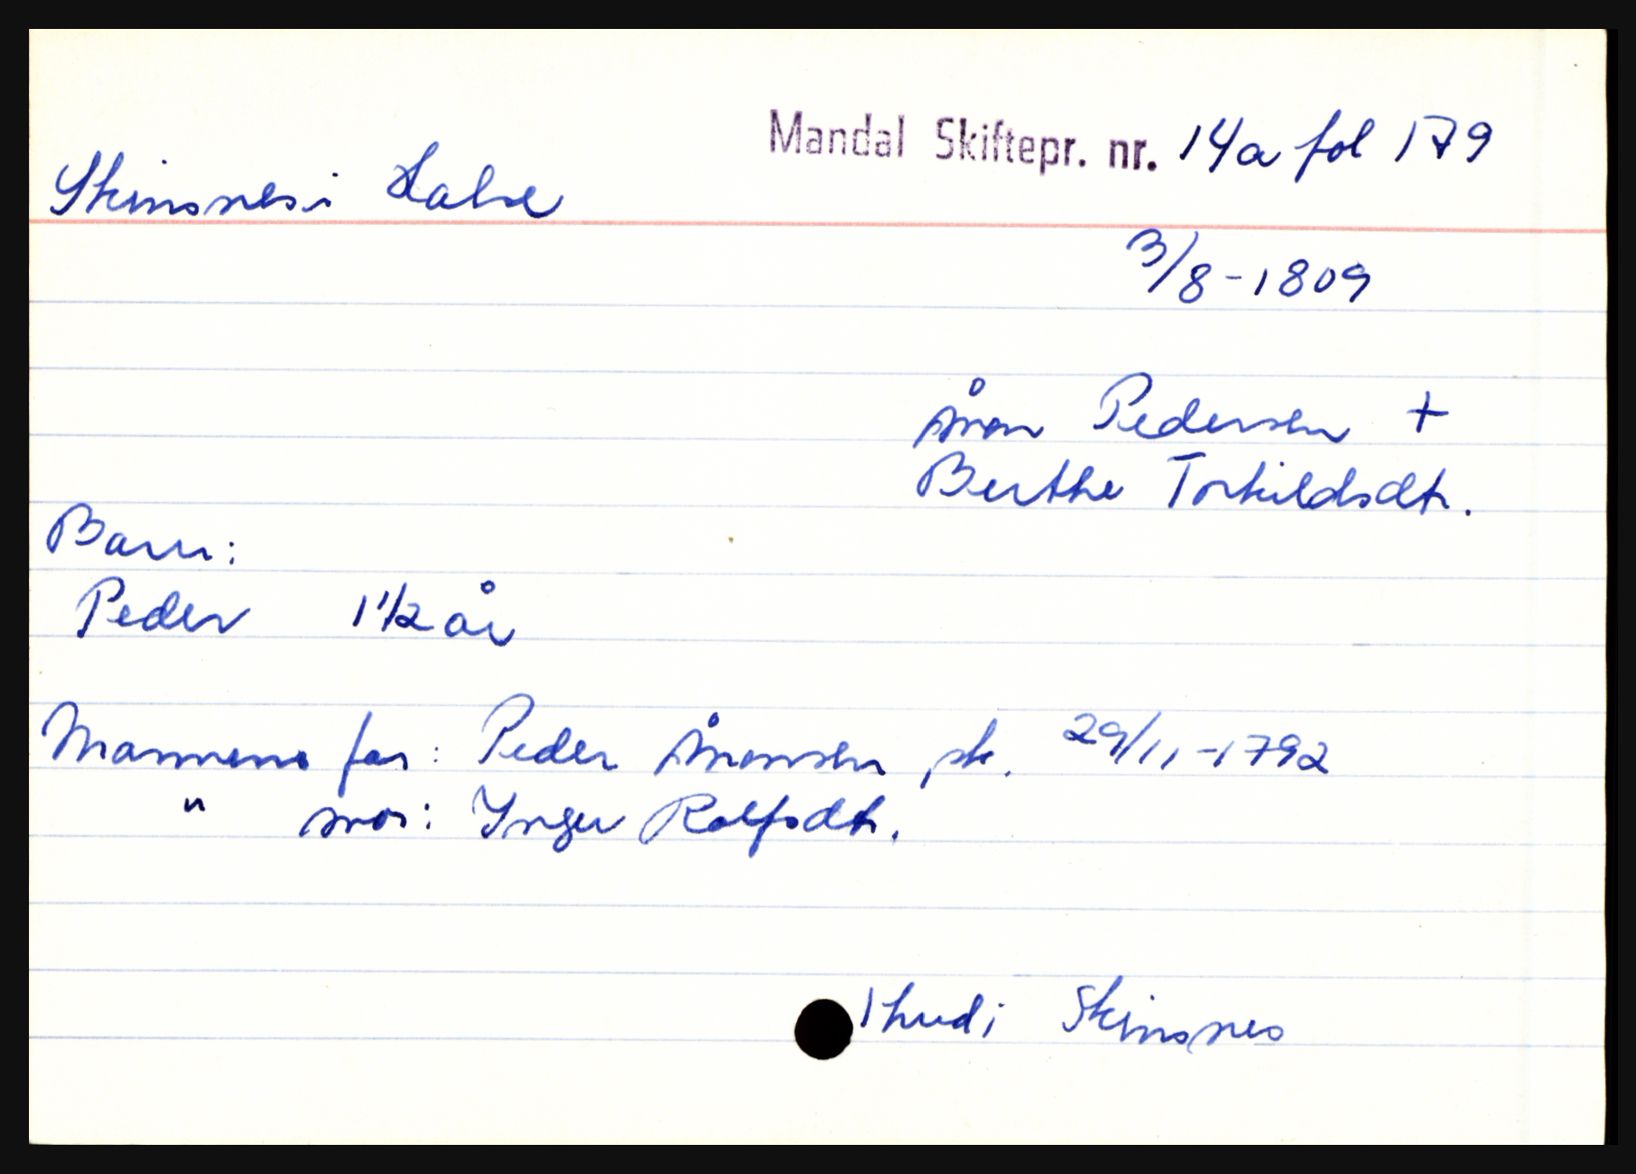 Mandal Skiftepr. nr. 14a fol 179
Skinsnes i Halse
3/8-1809
Ånon Pedersen +
Berthe Torkildsdtr.
Barn:
Peder 1 1/2 år
Mannens far: Peder Ånonsen sk. 29/11-1792
" mor: Inger Rolfsdtr.
1 hud i Skinsnes